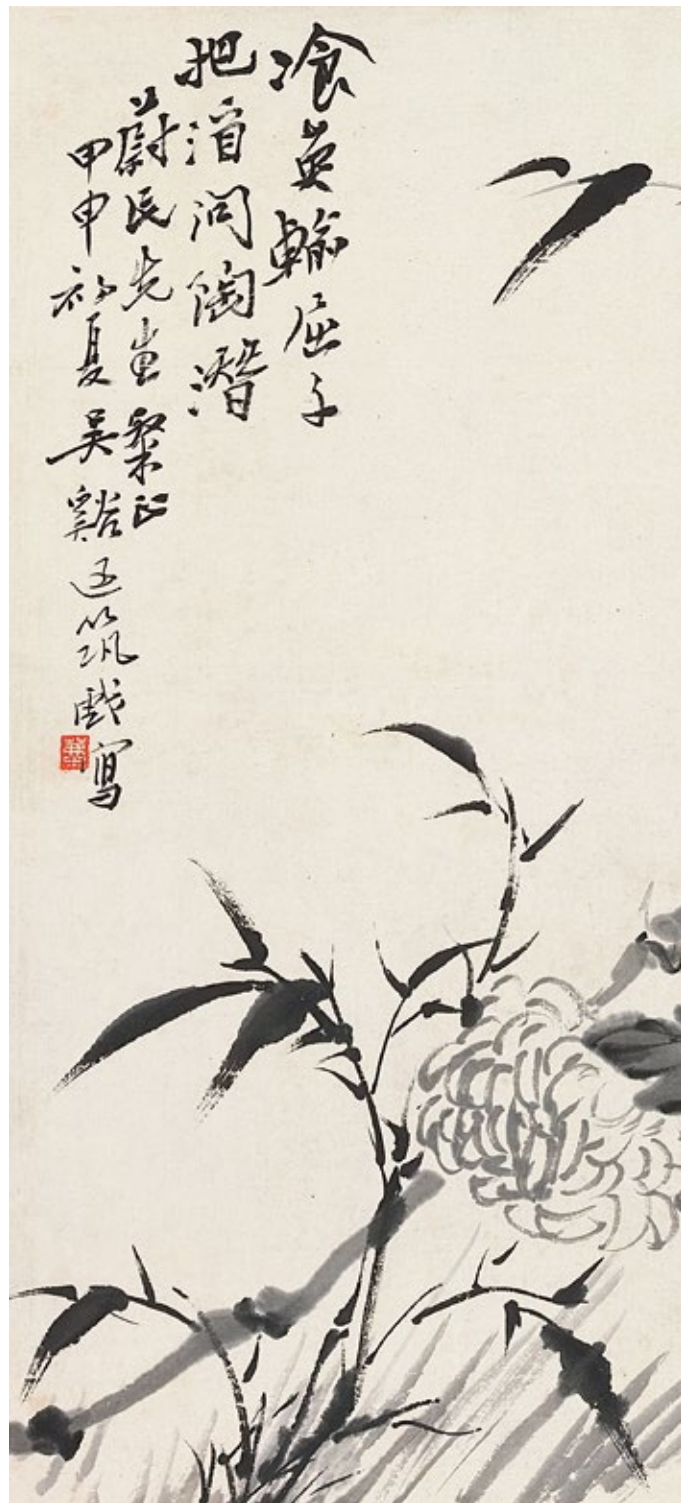 飡英輸屈子
把酒問陶潛
蔚民先生粲正
甲申初夏吳谿筑戲寫